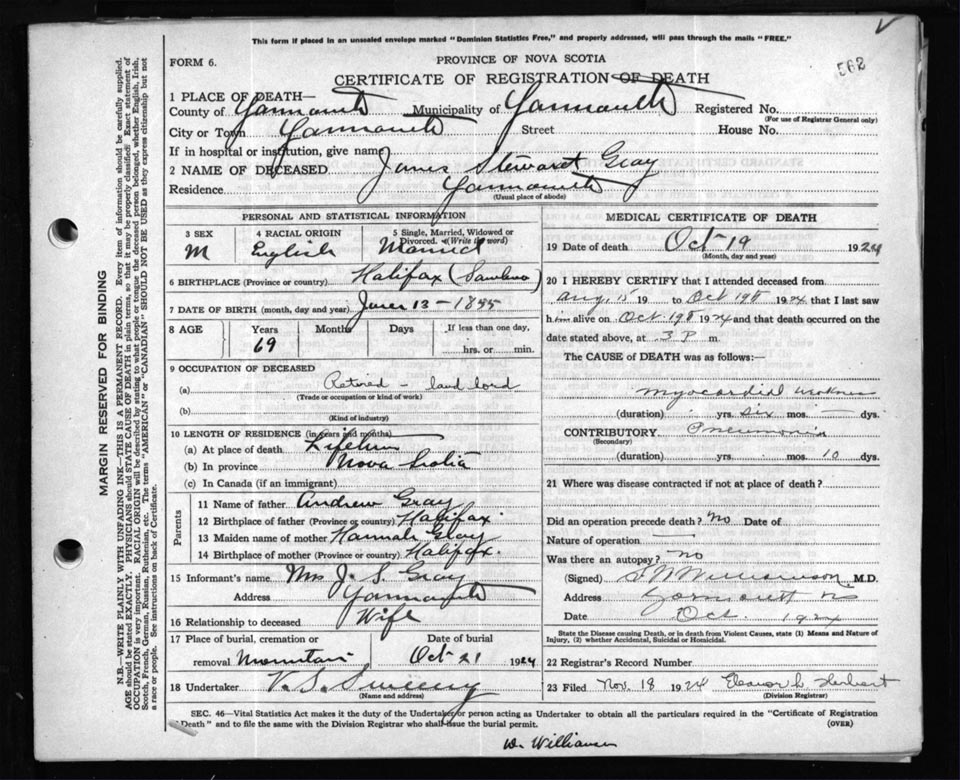 This form if placed in an unsealed envelope marked "Dominion Statistics Free," and properly addressed, will pass through the mails "FREE."
FORM 6.
PROVINCE OF NOVA SCOTIA
562
CERTIFICATE OF REGISTRATION OF DEATH
1 PLACE OF DEATH—
County of Yarmouth Municipality of Yarmouth Registered No.
(For use of Registrar General only)
City or Town Yarmouth Street House No.
If in hospital or institution, give name
2 NAME OF DECEASED James Stewart Gray
Residence Yarmouth
(Usual place of abode)
PERSONAL AND STATISTICAL INFORMATION
3 SEX 4 RACIAL ORIGIN 5 Single, Married, Widowed or Divorced. (Write the word)
M English Married
6 BIRTHPLACE (Province or country) Halifax (Sambro)
7 DATE OF BIRTH (month, day and year) June 13 - 1855
8 AGE Years Months Days If less than one day,
69 hrs. or min.
9 OCCUPATION OF DECEASED
(a) Retired - land lord
(Trade or occupation or kind of work)
(b)
(Kind of industry)
10 LENGTH OF RESIDENCE (in years and months)
(a) At place of death
(b) In province Nova Scotia
(c) In Canada (if an immigrant)
Parents
11 Name of father Andrew Gray
12 Birthplace of father (Province or country) Halifax
13 Maiden name of mother Hannah Gray
14 Birthplace of mother (Province or country) Halifax
15 Informant's name Mrs J. S. Gray
Address Yarmouth
16 Relationship to deceased Wife
17 Place of burial, cremation or removal Mountain Date of burial Oct 21 1924
18 Undertaker V. S. Sweeny
(Name and address)
MEDICAL CERTIFICATE OF DEATH
19 Date of death Oct 19 1924
(Month, day and year)
20 I HEREBY CERTIFY that I attended deceased from
Aug, 15 19 to Oct 19th 1924 that I last saw
him alive on Oct 19th 1924 and that death occurred on the
date stated above, at 3 P m.
The CAUSE OF DEATH was as follows:
Myocardial weakness
(duration) yrs. six mos. — dys.
CONTRIBUTORY Pneumonia
(Secondary)
(duration) yrs. mos. 10 dys.
21 Where was disease contracted if not at place of death?
Did an operation precede death? no Date of
Nature of operation —
Was there an autopsy? no
(Signed) Williamson M.D.
Address Yarmouth
Date Oct. 1924
State the Disease causing Death, or in death from Violent Causes, state (1) Means and Nature of
Injury, (2) whether Accidental, Suicidal or Homicidal.
22 Registrar's Record Number
23 Filed Nov. 18 1924 Eleanor L. Herbert
(Division Registrar)
SEC. 46—Vital Statistics Act makes it the duty of the Undertaker or person acting as Undertaker to obtain all the particulars required in the "Certificate of Registration
of Death" and to file the same with the Division Registrar who shall issue the burial permit. (OVER)
Dr. Williamson
MARGIN RESERVED FOR BINDING
N.B.—WRITE PLAINLY WITH UNFADING INK—THIS IS A PERMANENT RECORD. Every item of information should be carefully supplied.
AGE should be stated EXACTLY. PHYSICIANS should STATE CAUSE OF DEATH in plain terms, so that it may be properly classified. Exact statement of
OCCUPATION is very important. RACIAL ORIGIN will be described by stating to what people or tongue the deceased person belonged, whether English, Irish,
Scotch, French, German, Russian, Ruthenian, etc. The terms "AMERICAN" or "CANADIAN" SHOULD NOT BE USED as they express citizenship but not
a race or people. See instructions on back of Certificate.